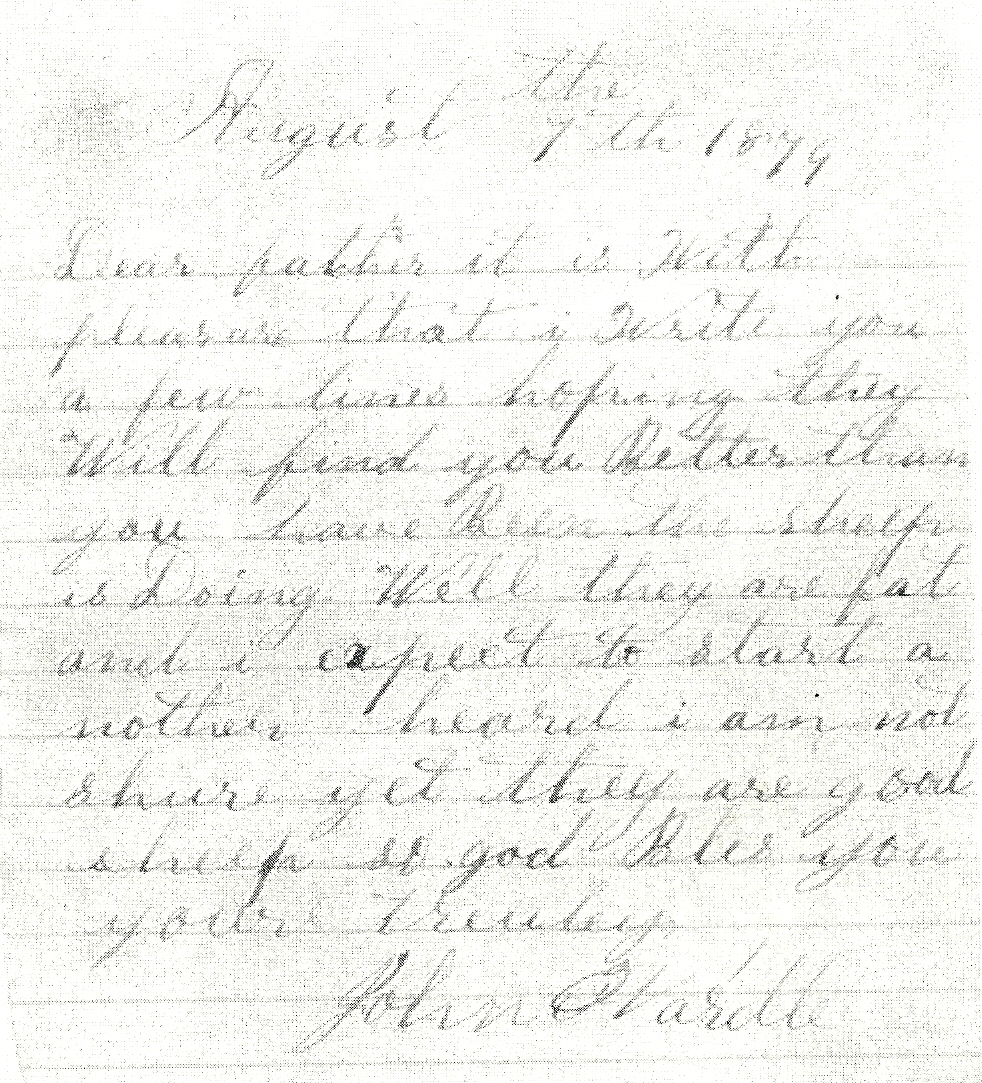 August the
7th 1879
Dear father it is With
pleasure that i Write you
a few lines hoping they
Will find you Better than
you have Been the sheep
is Doing Well they are fat
and i expect to start a
nother heard i am not
shure yet they are good
sheep so god Bles you
your truley
John Wardle